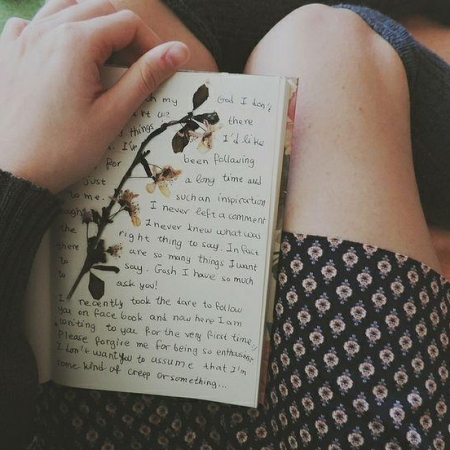 my God I don't
there
things I'd like
for been following
just a long time and
to me. such an inspiration
I never left a comment
the I never knew what was
right thing to say. In fact
there are so many things I want
to say. Gosh I have so much
to ask you!
I recently took the dare to follow
you on face book and now here I am
writing to you for the very first time,
Please forgive me for being so enthusiastic
I don't want you to assume that I'm
some kind of creep or something...